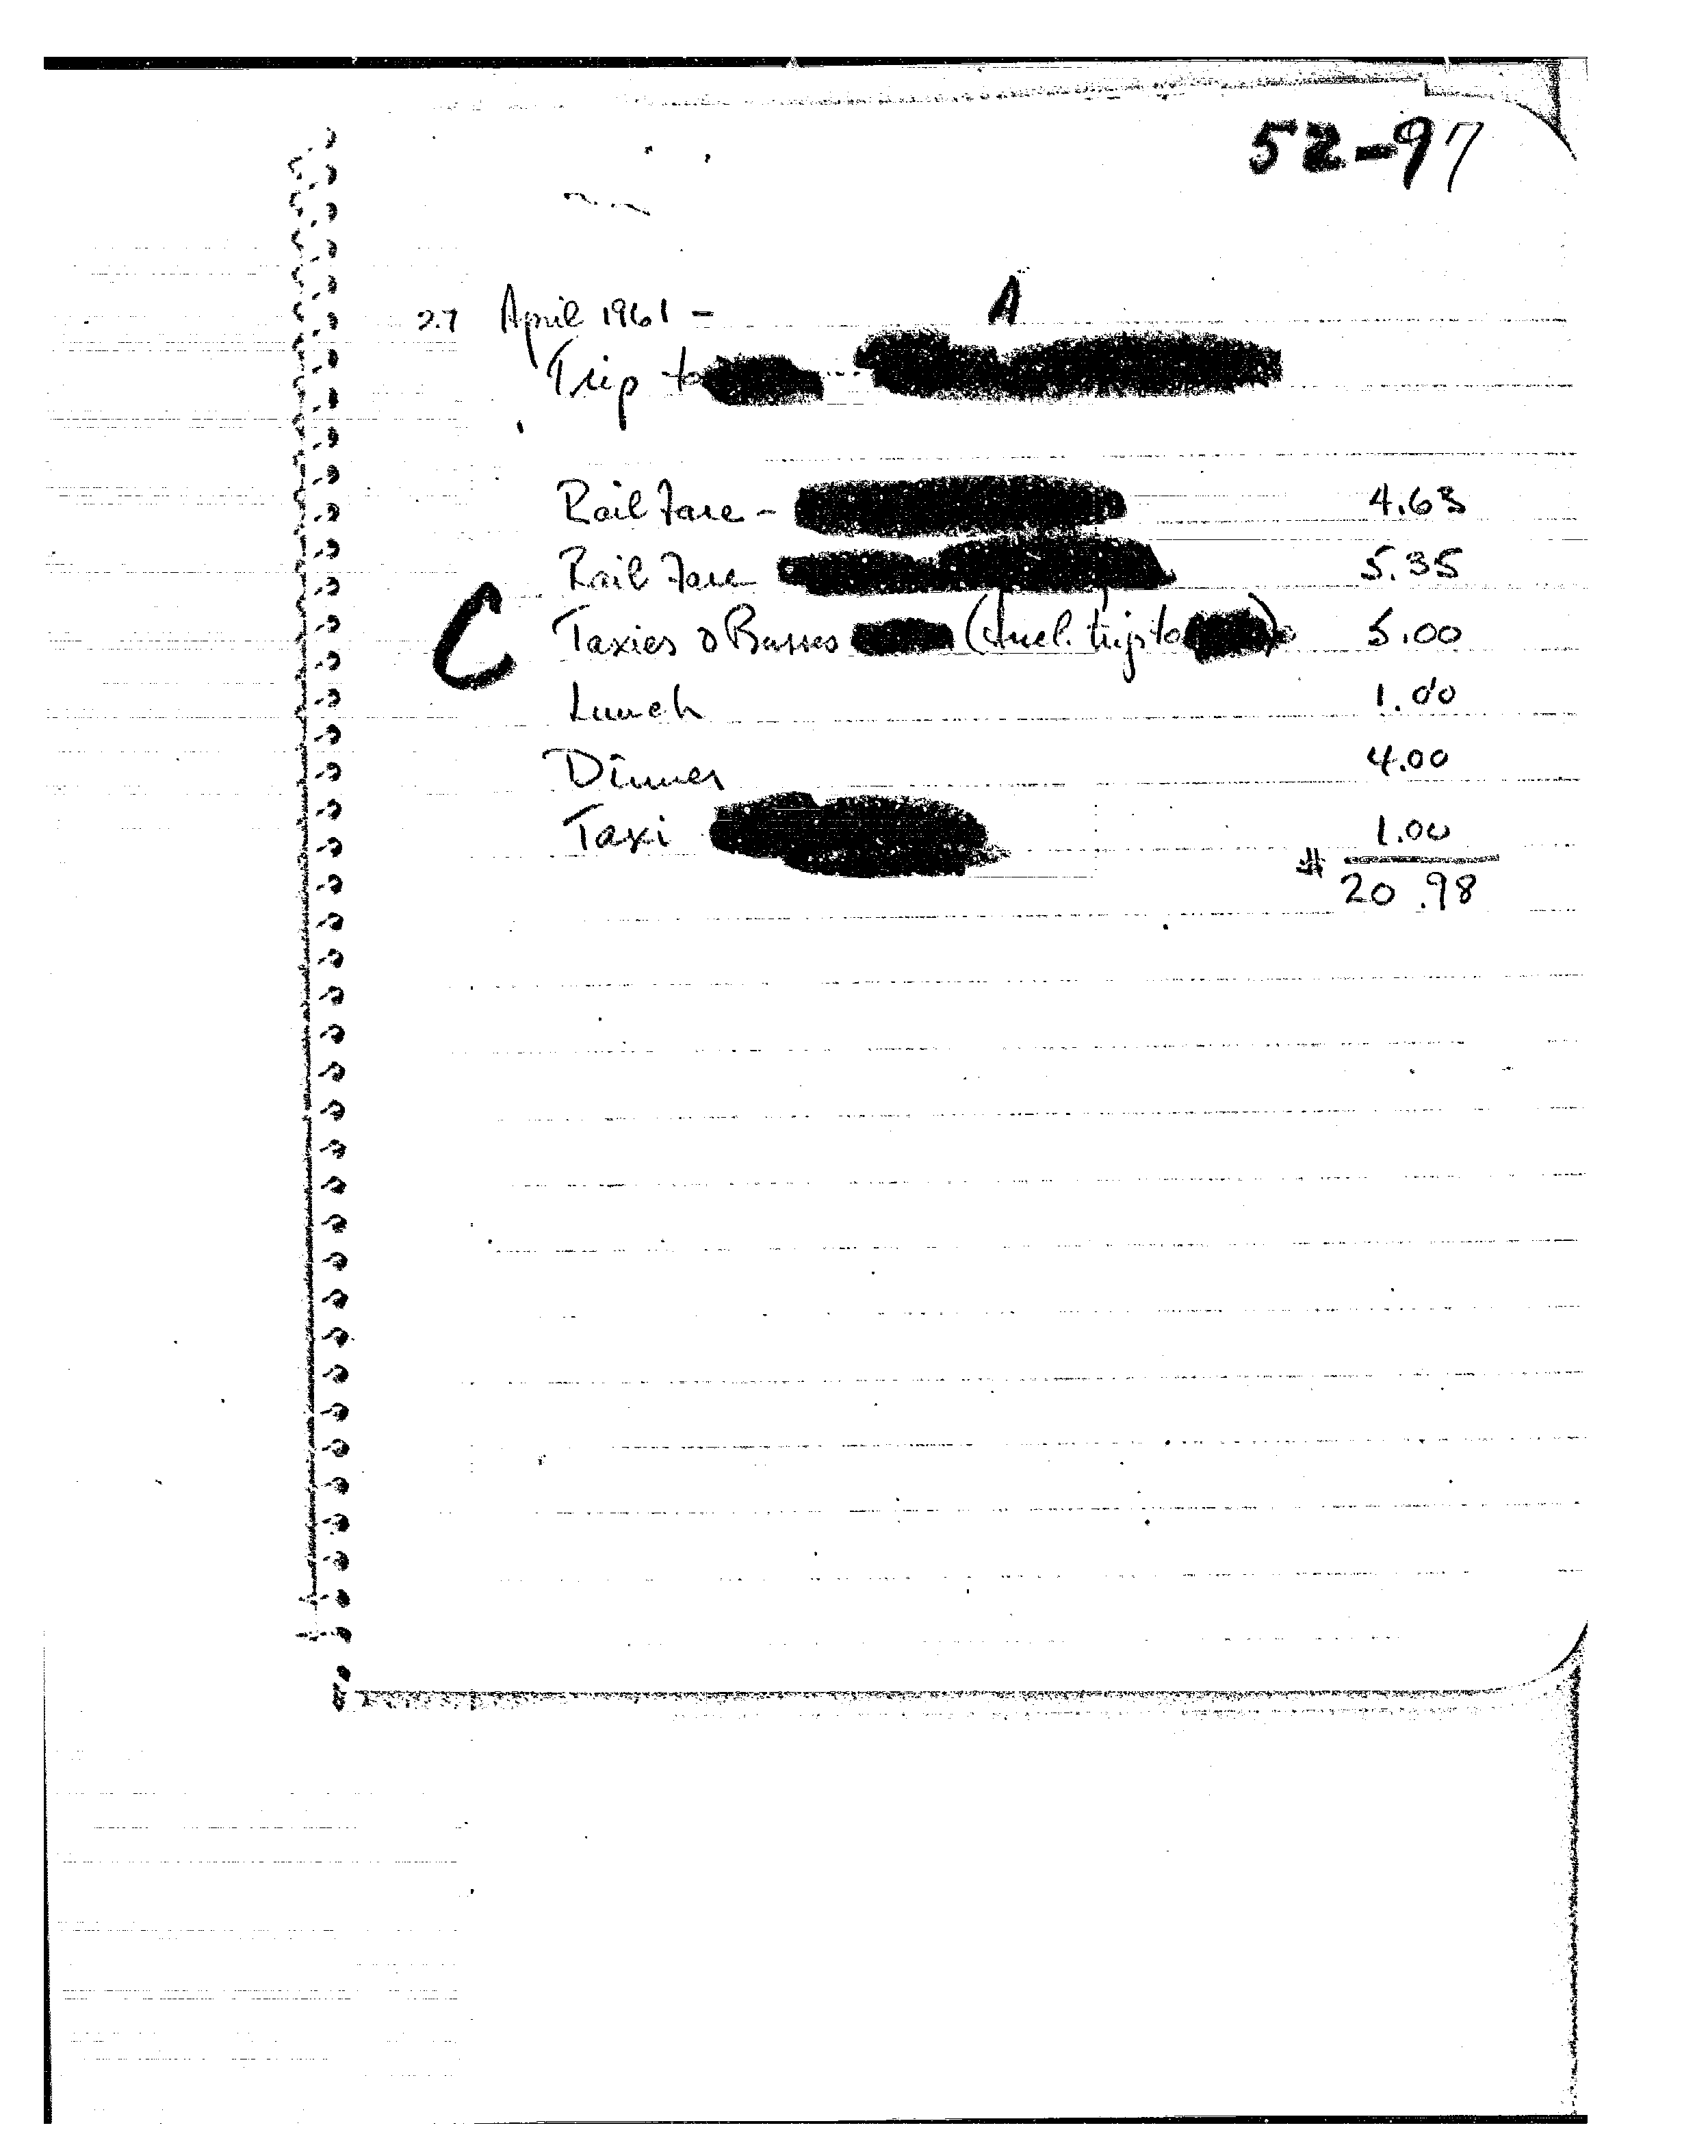 52-97
A
27 April 1961 -
Trip to
Rail Fare - 4.63
Rail Fare 5.35
C
Taxies & Busses (Incl. trip to ) 5.00
Lunch 1.00
Dinner 4.00
Taxi 1.00
# 20.98